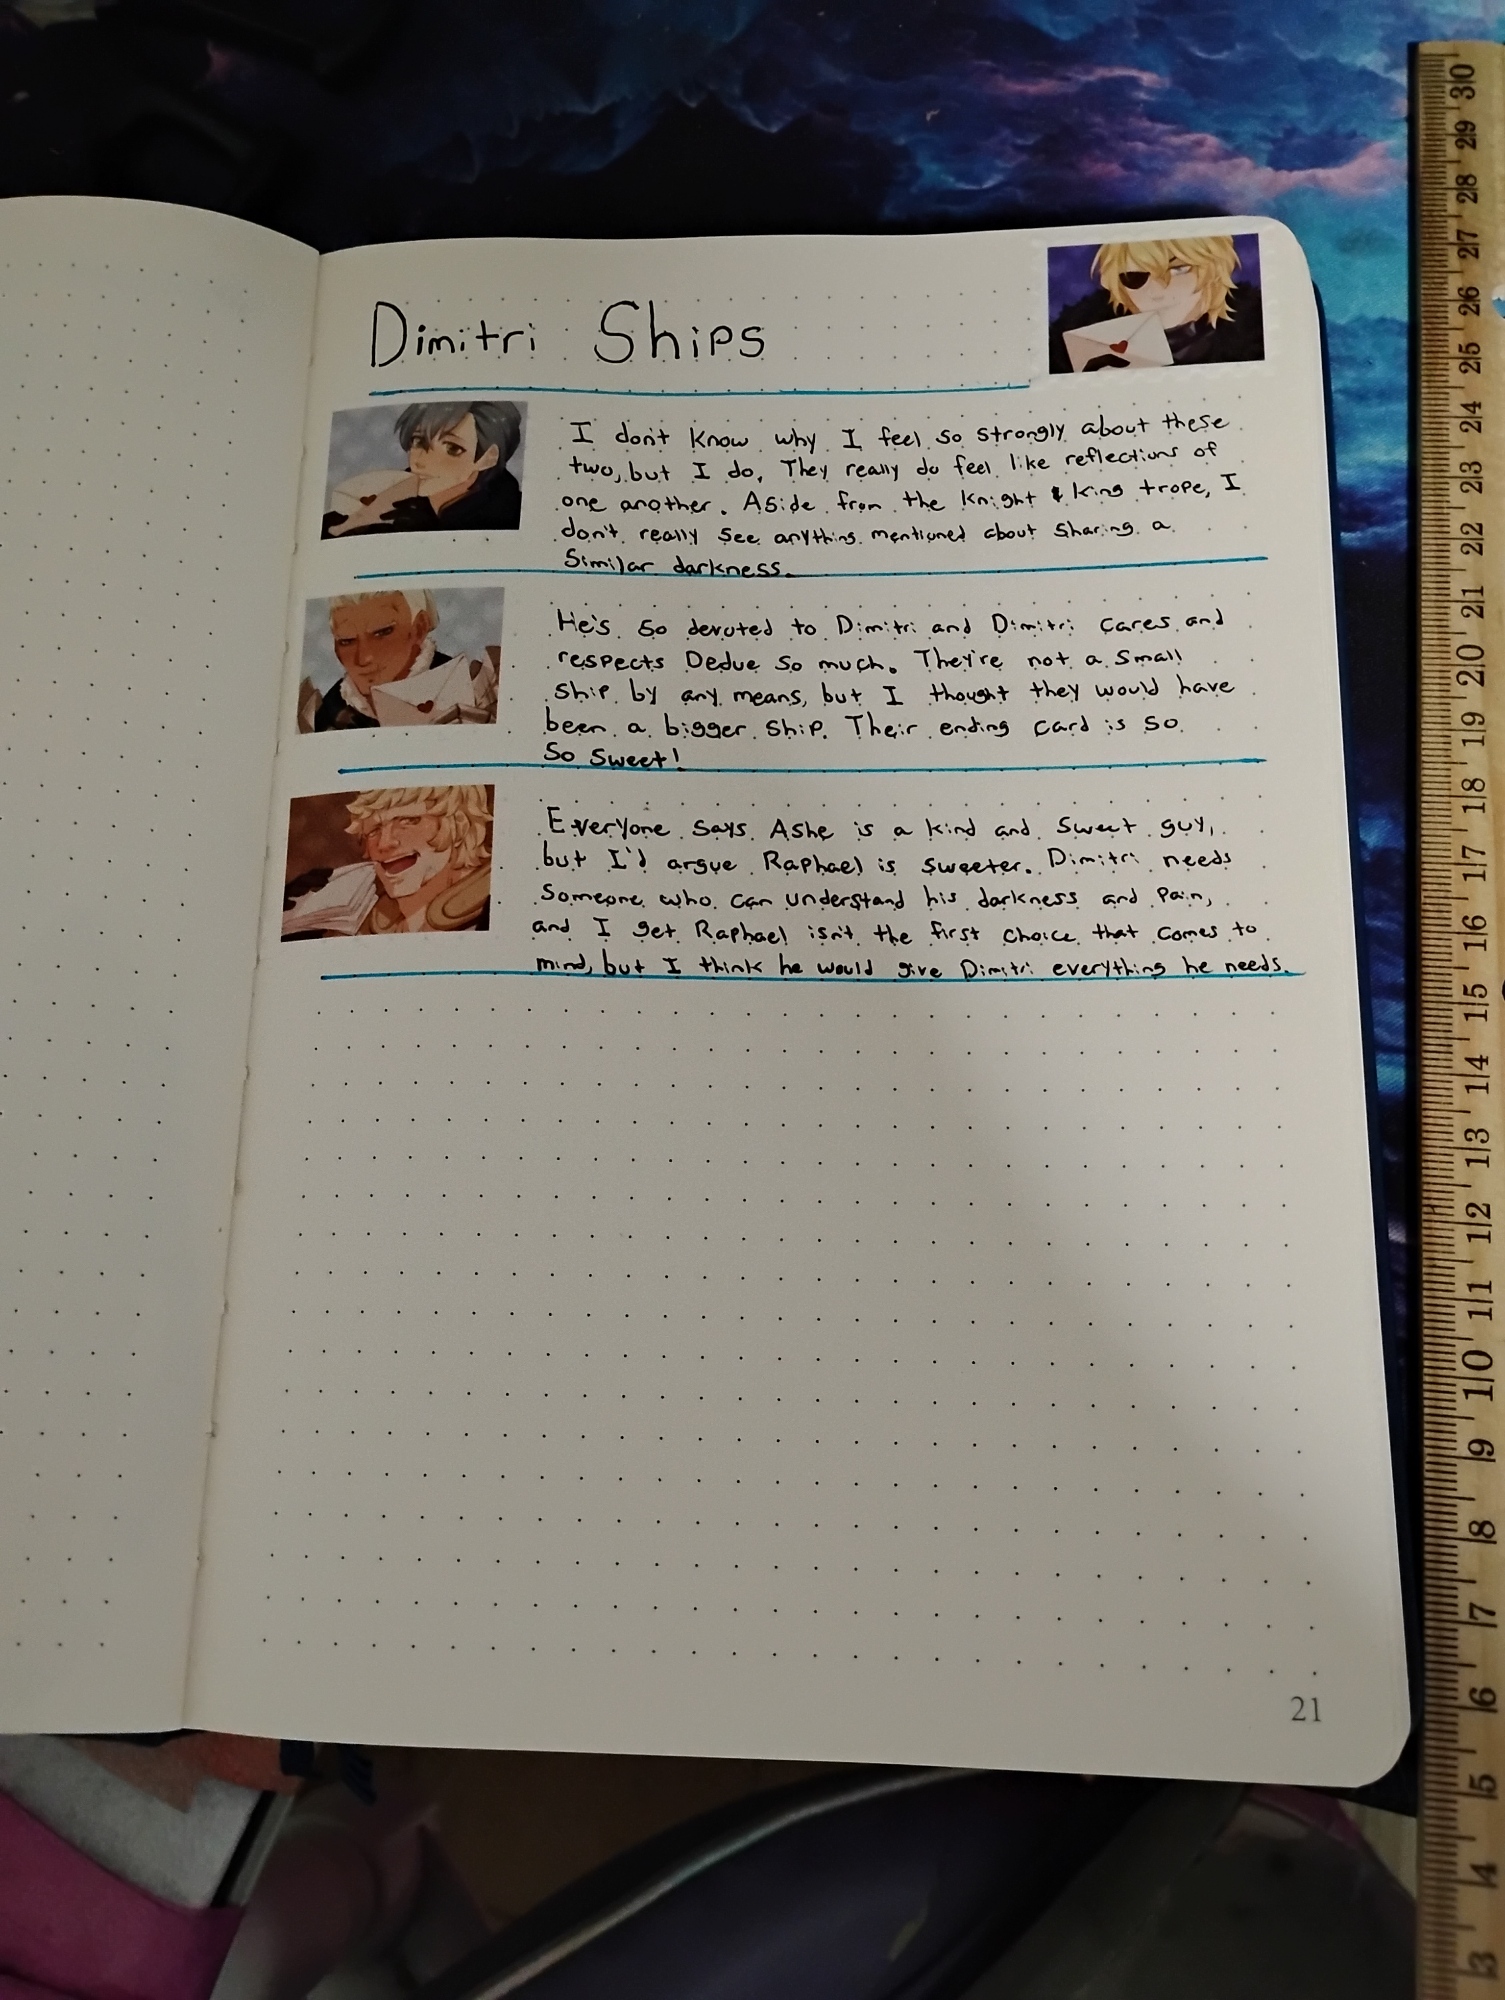 Dimitri Ships
I don't know why I feel so strongly about these
two, but I do. They really do feel like reflections of
one another. Aside from the knight & king trope, I
don't really see anything mentioned about sharing a
similar darkness.
He's so devoted to Dimitri and Dimitri cares and
respects Dedue so much. They're not a small
ship by any means, but I thought they would have
been a bigger ship. Their ending card is so
so sweet!
Everyone says Ashe is a kind and sweet guy,
but I'd argue Raphael is sweeter. Dimitri needs
someone who can understand his darkness and pain,
and I get Raphael isn't the first choice that comes to
mind, but I think he would give Dimitri everything he needs.
21
30
29
28
27
26
25
24
23
22
21
20
19
18
17
16
15
14
13
12
11
10
9
8
7
6
5
4
3